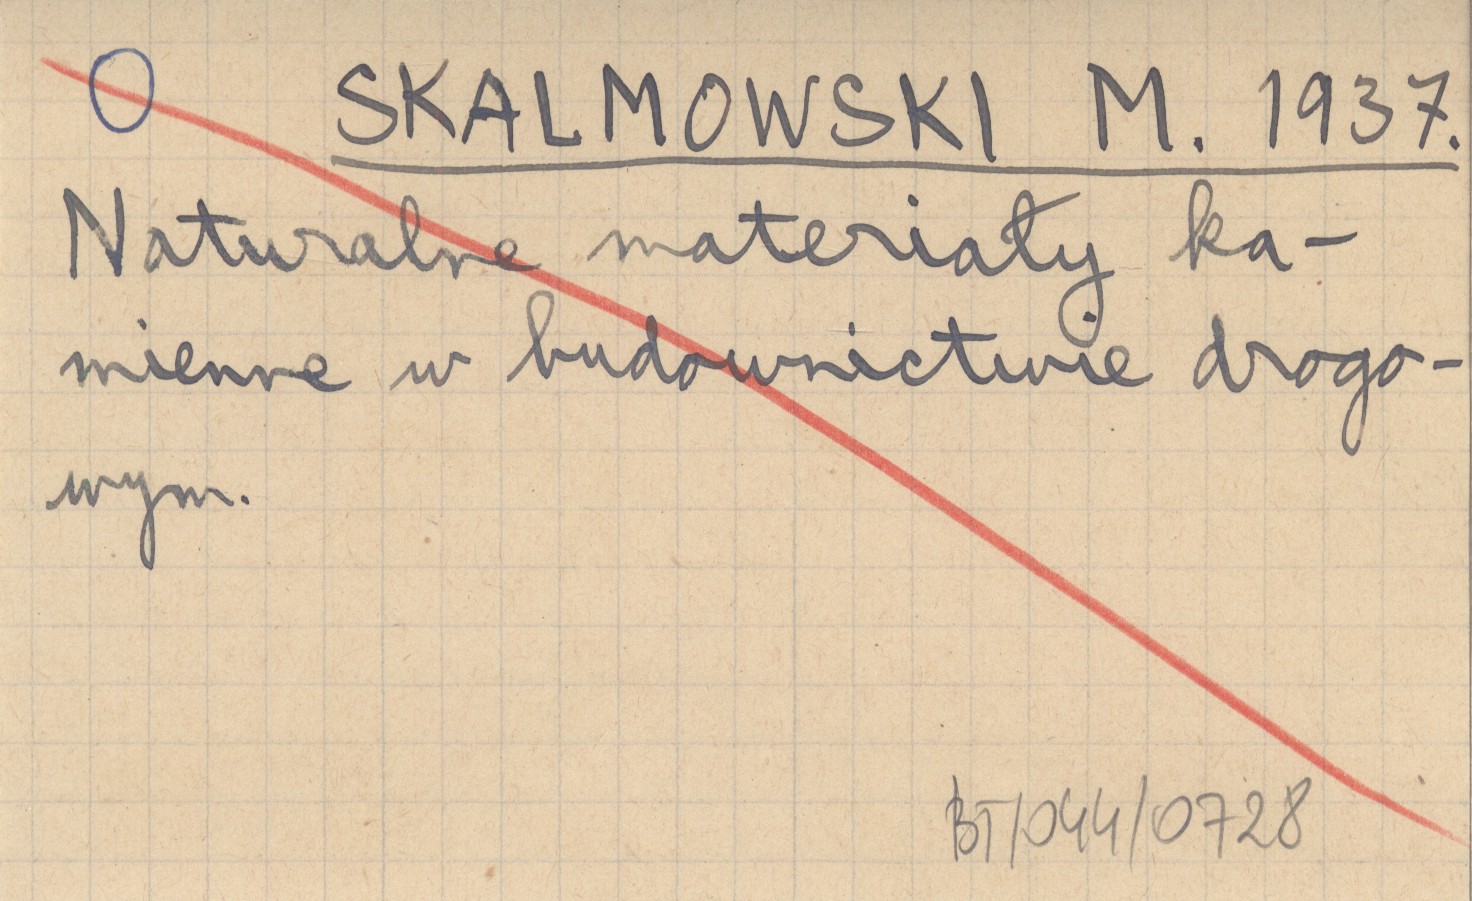 O SKALMOWSKI M. 1937.
Naturalne materiały ka-
mienne w budownictwie drogo-
wym.
BT/044/0728